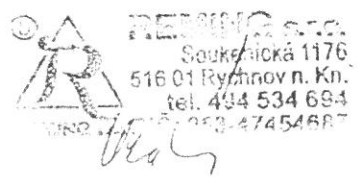 s.r.o.
Soukenická 1176
516 01 Rychnov n. Kn.
tel. 494 534 694
47454687